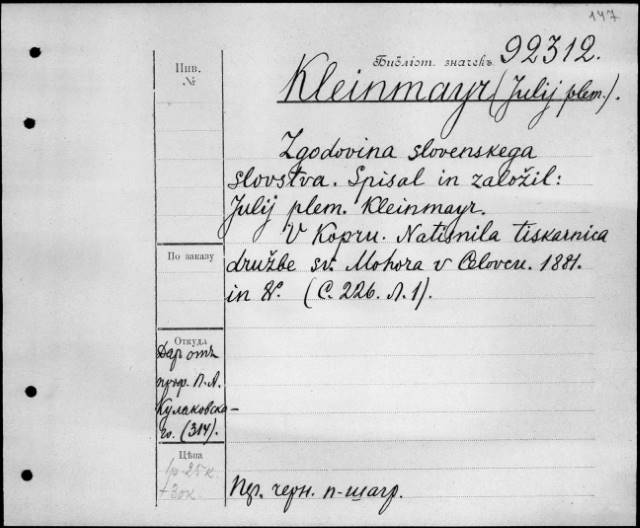 147
Библіот. значекъ 92312.
Инв.
№
Kleinmayr (Julij plem.).
Zgodovina slovenskega
slovstva. Spisal in založil:
Julij plem. Kleinmayr.
V Kopru. Natisnila tiskarnica
družbe sv. Mohora v Celovcu. 1881.
in 8º. (С. 226. Л. 1).
По заказу
Откуда
Даръ отъ
проф. П. А.
Кулаковско-
го. (314).
Цѣна
1р-25к
+30к
Пер. черн. п-шагр.